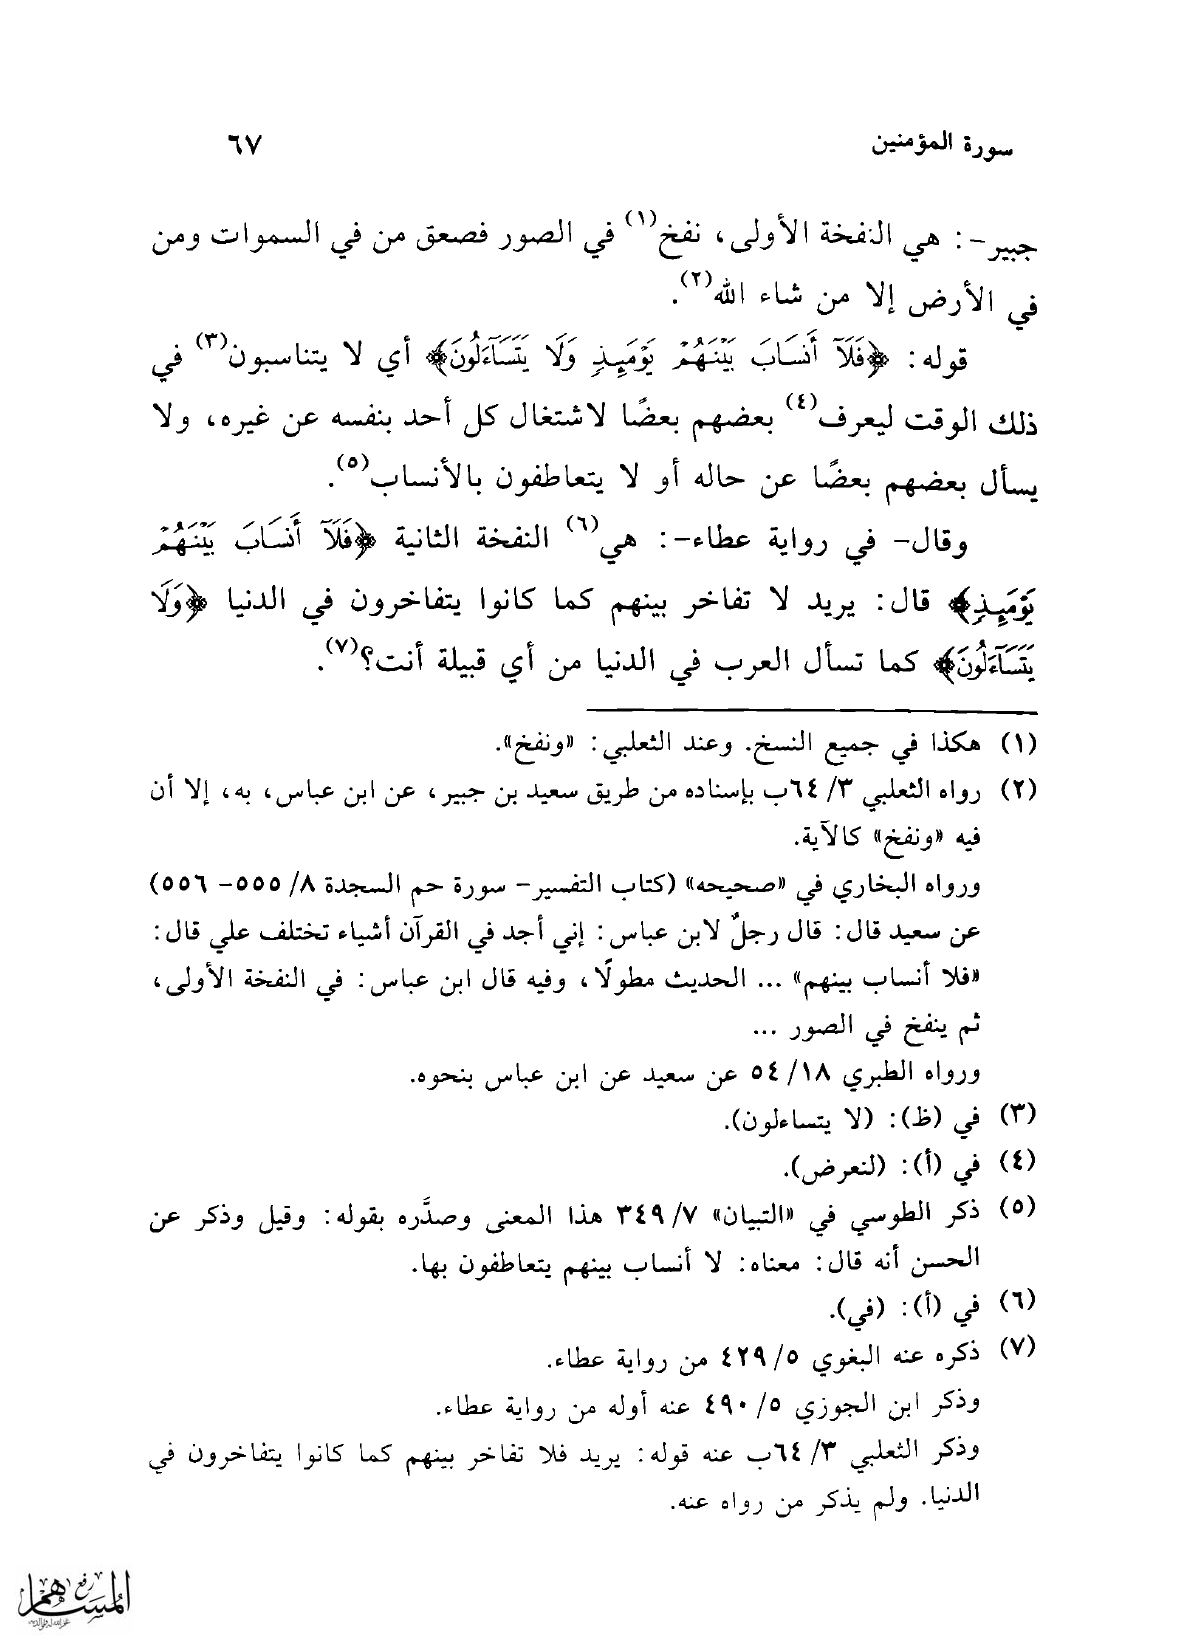 سورة المؤمنين
٦٧
جبير-: هي النفخة الأولى، نفخ(١) في الصور فصعق من في السموات ومن
في الأرض إلا من شاء الله(٢).
قوله: ﴿فَلَآ أَنسَابَ بَيْنَهُمْ يَوْمَئِذٍ وَلَا يَتَسَآءَلُونَ﴾ أي لا يتناسبون(٣) في
ذلك الوقت ليعرف(٤) بعضهم بعضًا لاشتغال كل أحد بنفسه عن غيره، ولا
يسأل بعضهم بعضًا عن حاله أو لا يتعاطفون بالأنساب(٥).
وقال- في رواية عطاء-: هي(٦) النفخة الثانية ﴿فَلَآ أَنسَابَ بَيْنَهُمْ
يَوْمَئِذٍ﴾ قال: يريد لا تفاخر بينهم كما كانوا يتفاخرون في الدنيا ﴿وَلَا
يَتَسَآءَلُونَ﴾ كما تسأل العرب في الدنيا من أي قبيلة أنت؟(٧).
(١) هكذا في جميع النسخ. وعند الثعلبي: «ونفخ».
(٢) رواه الثعلبي ٣/ ٦٤ب بإسناده من طريق سعيد بن جبير، عن ابن عباس، به، إلا أن
فيه «ونفخ» كالآية.
ورواه البخاري في «صحيحه» (كتاب التفسير- سورة حم السجدة ٨/ ٥٥٥- ٥٥٦)
عن سعيد قال: قال رجلٌ لابن عباس: إني أجد في القرآن أشياء تختلف علي قال:
«فلا أنساب بينهم» ... الحديث مطولًا، وفيه قال ابن عباس: في النفخة الأولى،
ثم ينفخ في الصور ...
ورواه الطبري ١٨/ ٥٤ عن سعيد عن ابن عباس بنحوه.
(٣) في (ظ): (لا يتساءلون).
(٤) في (أ): (لنعرض).
(٥) ذكر الطوسي في «التبيان» ٧/ ٣٤٩ هذا المعنى وصدَّره بقوله: وقيل وذكر عن
الحسن أنه قال: معناه: لا أنساب بينهم يتعاطفون بها.
(٦) في (أ): (في).
(٧) ذكره عنه البغوي ٥/ ٤٢٩ من رواية عطاء.
وذكر ابن الجوزي ٥/ ٤٩٠ عنه أوله من رواية عطاء.
وذكر الثعلبي ٣/ ٦٤ب عنه قوله: يريد فلا تفاخر بينهم كما كانوا يتفاخرون في
الدنيا. ولم يذكر من رواه عنه.